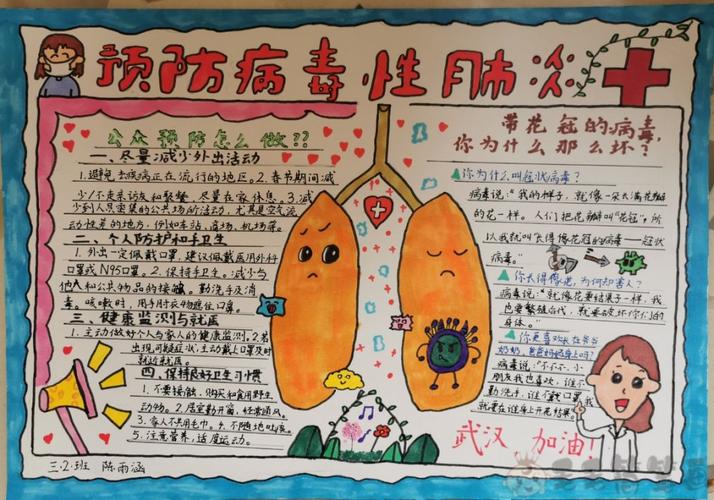 预防病毒性肺炎
公众预防怎么做??
一、尽量减少外出活动
1.避免去疾病正在流行的地区。2.春节期间减
少/不走亲访友和聚餐,尽量在家休息。3.减
少到人员密集的公共场所活动,尤其是空气流
动性差的地方,例如车站,商场,机场等。
二、个人防护和手卫生
1.外出一定佩戴口罩,建议佩戴医用外科
口罩或N95口罩。2.保持手卫生。减少与
他人和公共物品的接触。勤洗手及消
毒。咳嗽时,用手肘衣物遮住口鼻。
三、健康监测与就医
1.主动做好个人与家人的健康监测。2.若
出现可疑症状,主动戴上口罩及时
就近就医。
四、保持良好卫生习惯
1.不要接触,购买和食用野生
动物。2.居室勤开窗,经常通风。
3.家人不共用毛巾。4.不随地吐痰。
5.注意营养,适度运动。
三.2.班 陈雨涵
带花冠的病毒,
你为什么那么坏?
你为什么叫冠状病毒?
病毒说:“我的样子,就像一朵长满花瓣
的花一样。人们把花瓣叫“花冠”,所
以我就叫“长得像花冠的病毒——冠状
病毒。”
你长得像花,为何如害人?
病毒说:“就像花要结果子一样,我
也要繁殖后代,就要破坏你们的
身体。”
你更喜欢长在爷爷
奶奶,爸爸妈妈身上吗?
病毒说:“不不不,小
朋友我也喜欢,谁不
勤洗手,谁不戴口罩,我
就要在谁身上开花结果。”
武汉 加油!